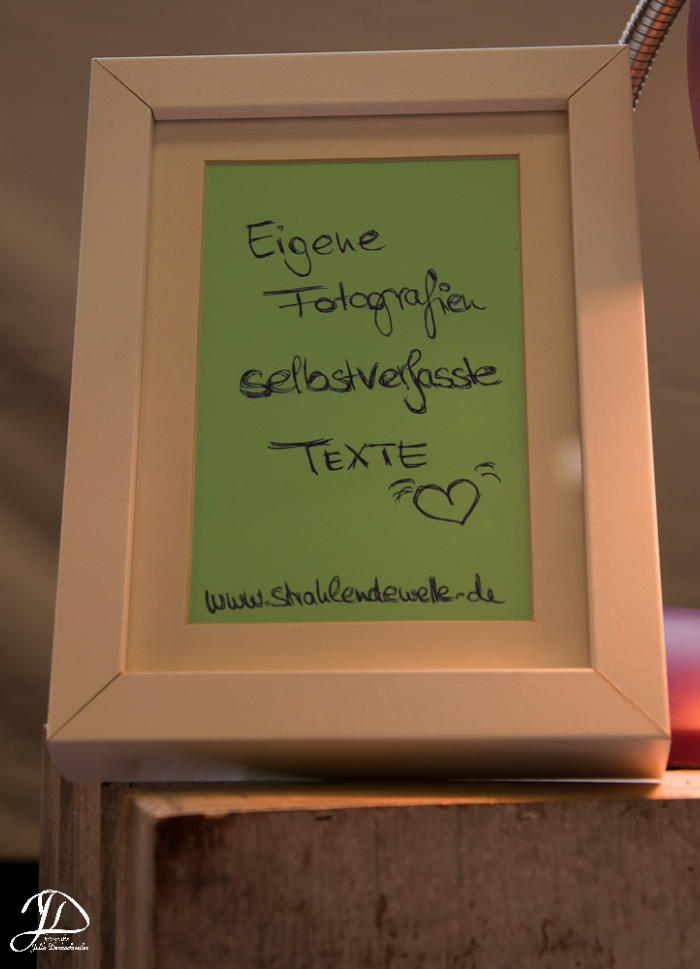 Eigene
Fotografien
selbstverfasste
TEXTE
www.strahlendewelle.de
JD